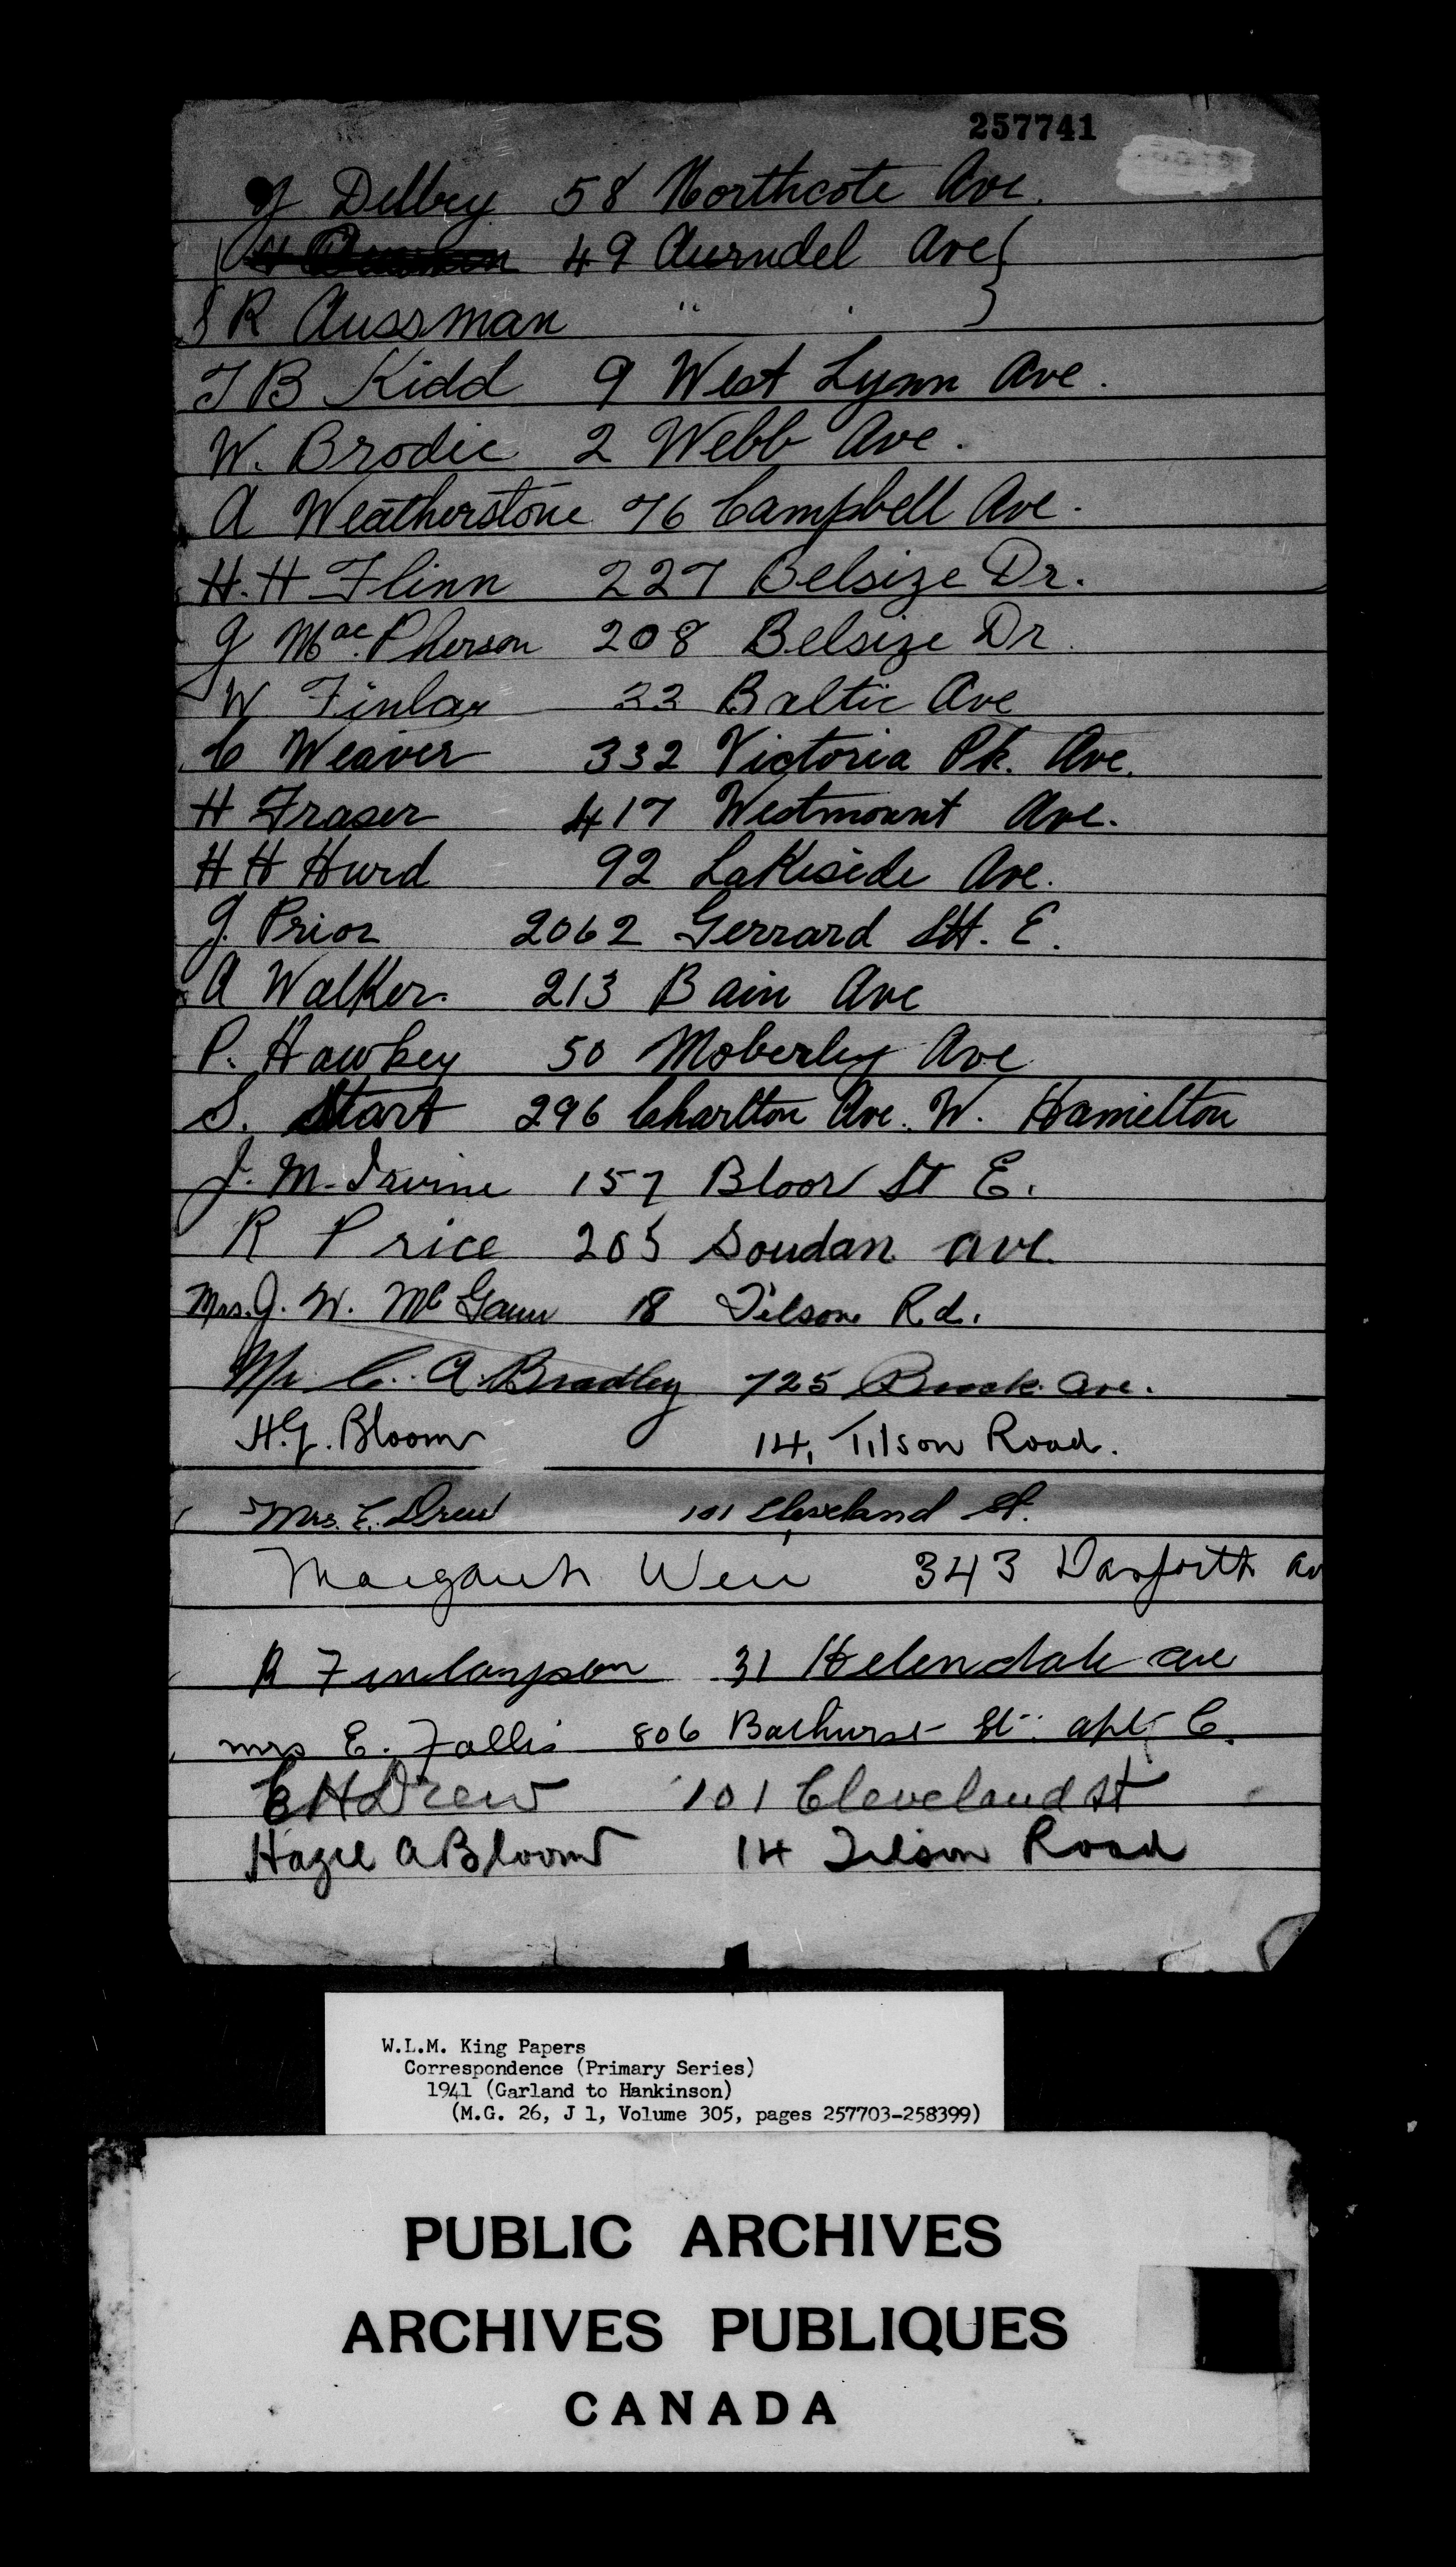 257741
J Delbry 58 Northcote Ave.
49 Aurndel Ave
S R Aussman " "
T B Kidd 9 West Lynn Ave.
W. Brodie 2 Webb Ave.
A Weatherstone 76 Campbell Ave.
H. H Flinn 227 Belsize Dr.
J MacPherson 208 Belsize Dr.
W Finlay 33 Baltic Ave
C Weaver 332 Victoria Pk. Ave.
H Fraser 417 Westmount Ave.
H H Hurd 92 Lakeside Ave.
J. Prior 2062 Gerrard St. E.
A Walker. 213 Bain Ave
P. Hawkey 50 Moberley Ave
S. Start 296 Charlton Ave. W. Hamilton
J. M. Irvine 157 Bloor St E.
R Price 205 Soudan ave.
Mrs. J. W. McGann 18 Tilson Rd.
Mr C. A. Bradley 725 Brock Ave.
H.G. Bloom 14, Tilson Road.
Mrs. E. Drew 101 Cleveland St.
Margaret Weir 343 Danforth Av
R Finlayson 31 Helendale ave
Mrs E. Fallis 806 Bathurst St. apt C.
E H Drew 101 Cleveland St
Hazel A Bloom 14 Tilson Road
W.L.M. King Papers
Correspondence (Primary Series)
1941 (Garland to Hankinson)
(M.G. 26, J 1, Volume 305, pages 257703-258399)
PUBLIC ARCHIVES
ARCHIVES PUBLIQUES
CANADA